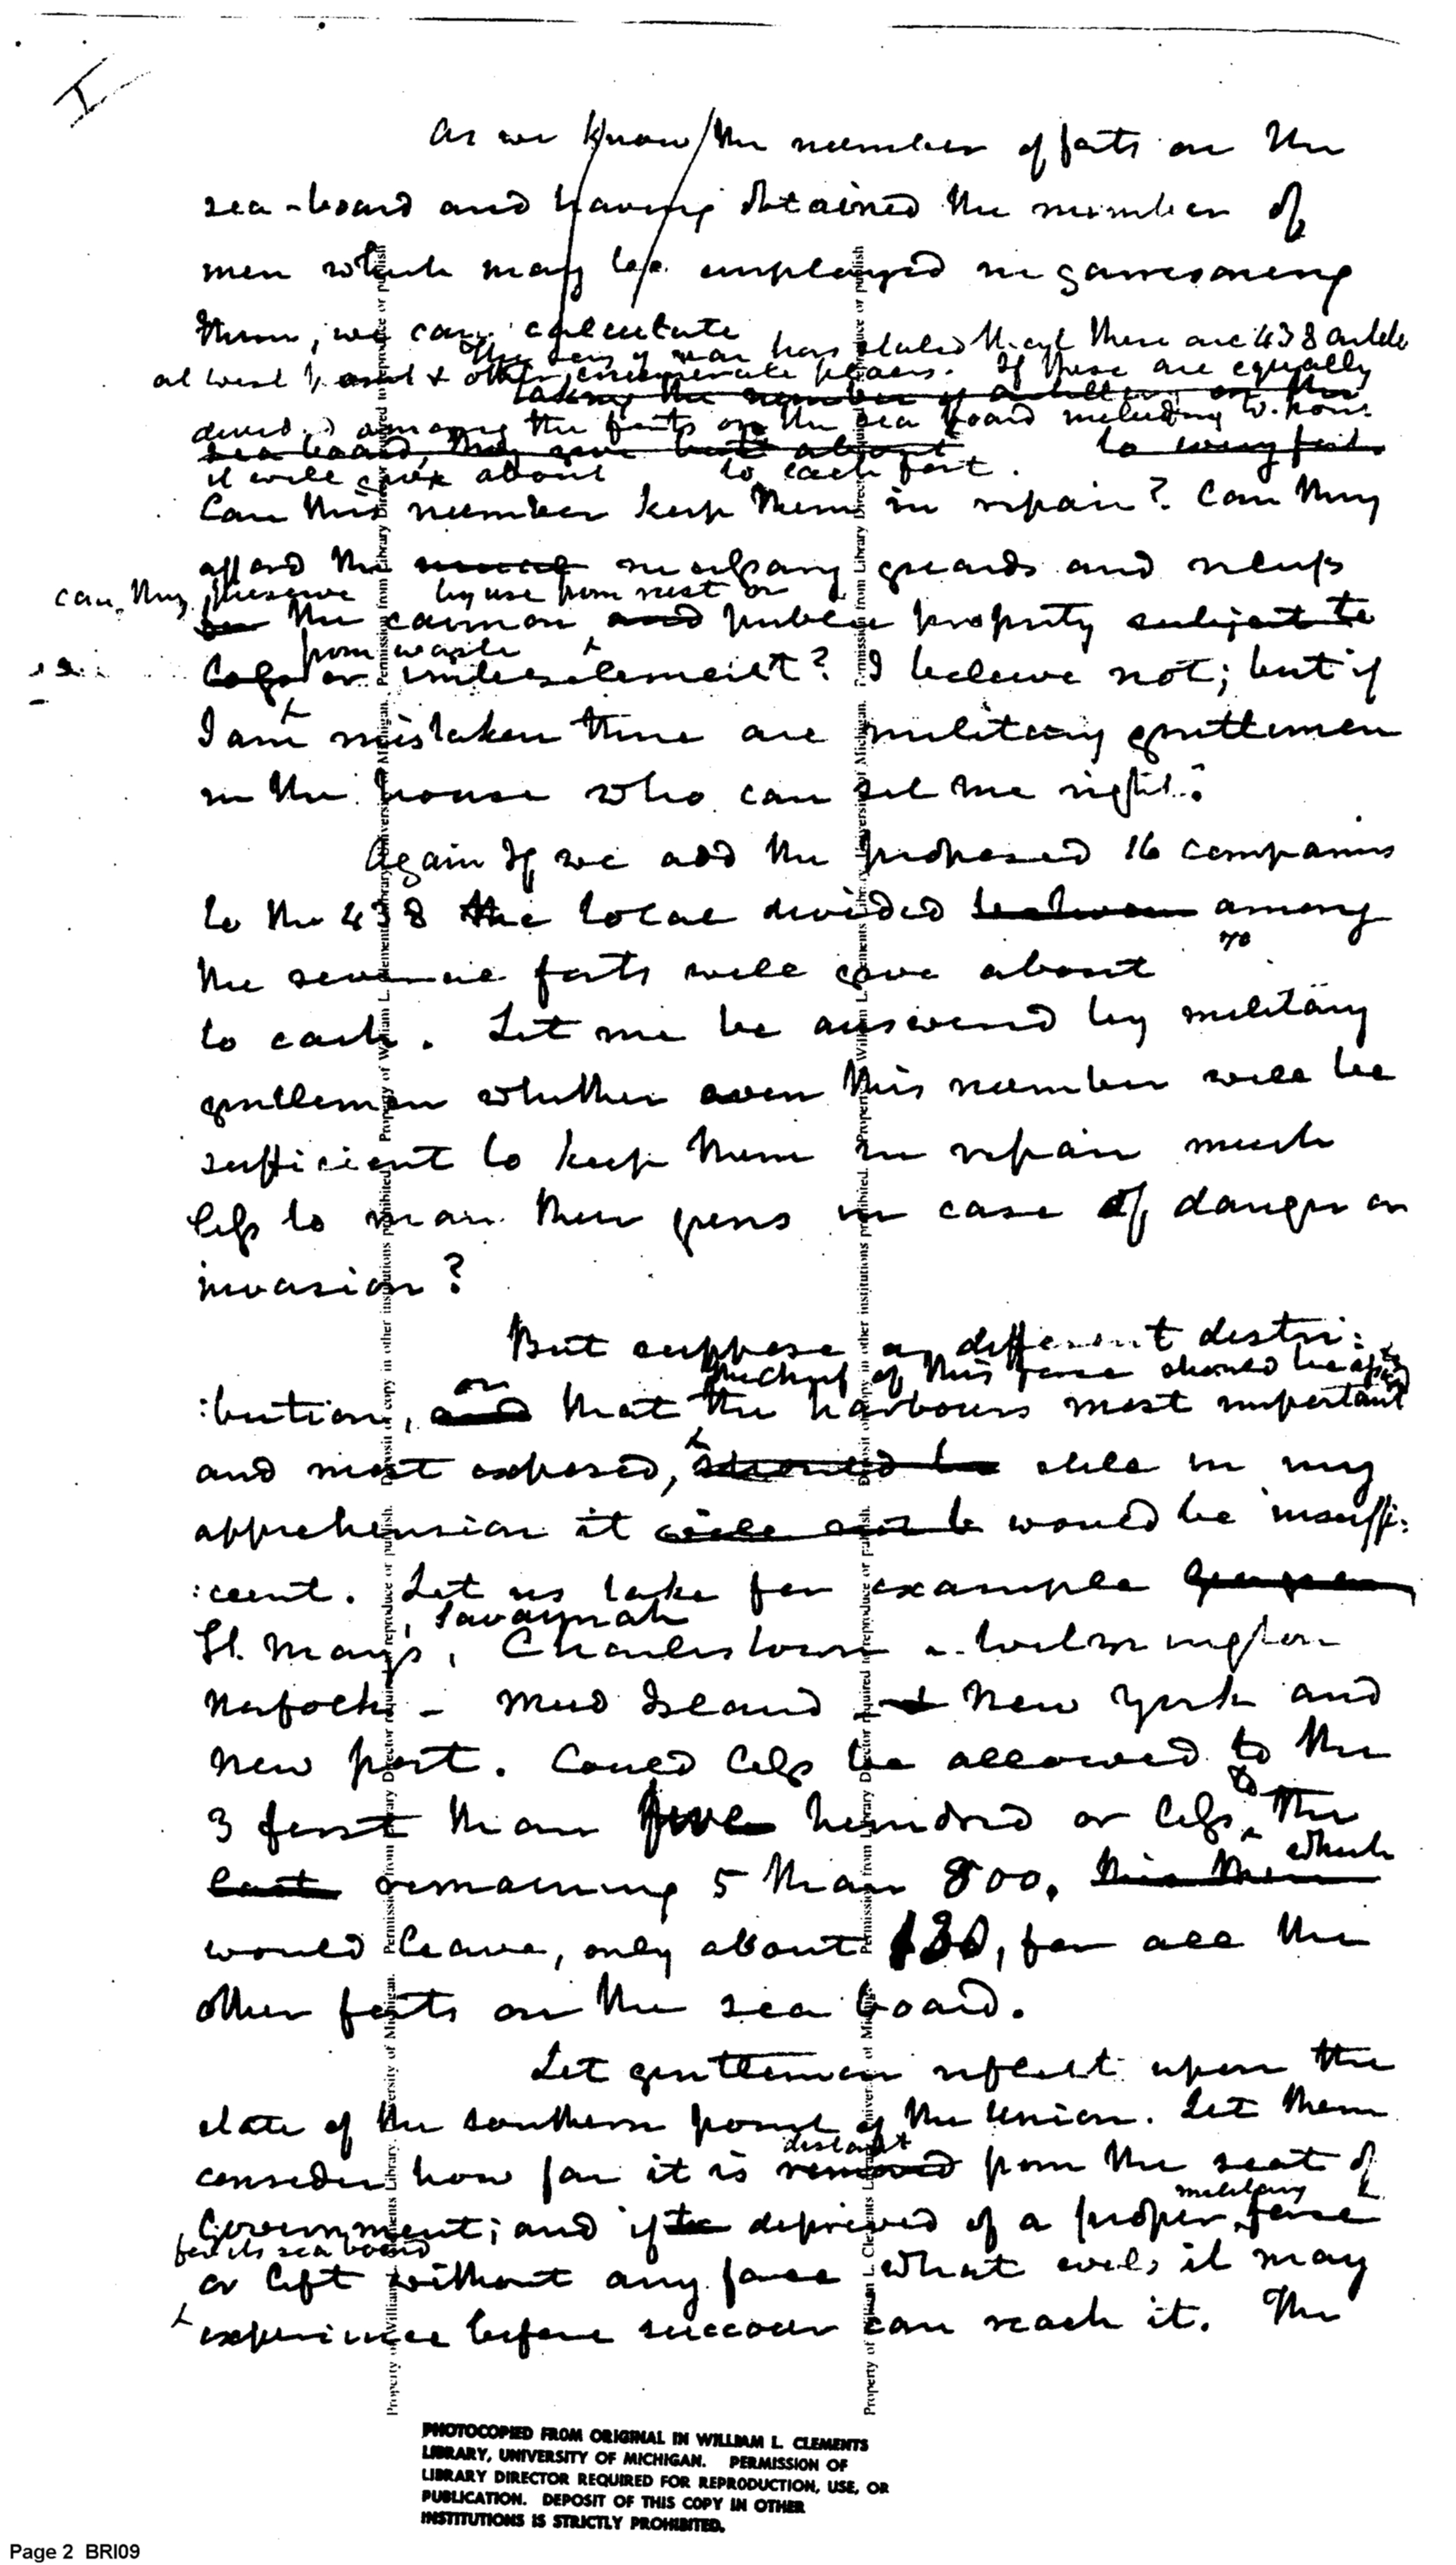 I
As we know the number of forts on the
sea-board and having obtained the number of
men which may be employed in garrisoning
them, we can calculate
The secy of war has stated that there are 438 artille
at west point & other enumerate places. If these are equally
taking the number of artillery on the
divided among the forts on the sea board including w. point
sea board, they give but about to every fort.
it will give about to each fort.
Can this number keep them in repair? Can they
afford the usual necessary guards and reliefs
can they preserve by use from rust or
the cannon and public property subject to
from waste
loss or embezzlement? I believe not; but if
I am mistaken there are military gentlemen
in the house who can set me right.
Again If we add the proposed 16 companies
to the 438 the total divided between among
70
the several forts will give about
to each. Let me be answered by military
gentlemen whether even this number will be
sufficient to keep them in repair much
less to man their guns in case of danger or
invasion?
But suppose a different distri:
the chief of this force should be
or
:bution, and that the harbours most important
and most exposed, should be still in my
apprehension it will not be would be insuffi:
:cient. Let us take for example
Savannah
St. Marys, Charlestown Wilmington
Norfolk - Mud Island & New York and
New port. Could less be allowed to the
to
3 first than five hundred or less the
which
last remaining 5 than 800. this then
would leave, only about 130, for all the
other forts on the sea board.
Let gentlemen reflect upon the
state of the southern point of the Union. Let them
distant
consider how far it is removed from the seat of
military
Government; and if deprived of a proper force
for its sea board
or left without any force what evils it may
experience before succour can reach it. The
Property of William L. Clements Library, University of Michigan. Permission from Library Director required to reproduce or publish. Deposit of copy in other institutions prohibited.
PHOTOCOPIED FROM ORIGINAL IN WILLIAM L. CLEMENTS
LIBRARY, UNIVERSITY OF MICHIGAN. PERMISSION OF
LIBRARY DIRECTOR REQUIRED FOR REPRODUCTION, USE, OR
PUBLICATION. DEPOSIT OF THIS COPY IN OTHER
INSTITUTIONS IS STRICTLY PROHIBITED.
Page 2 BRI09